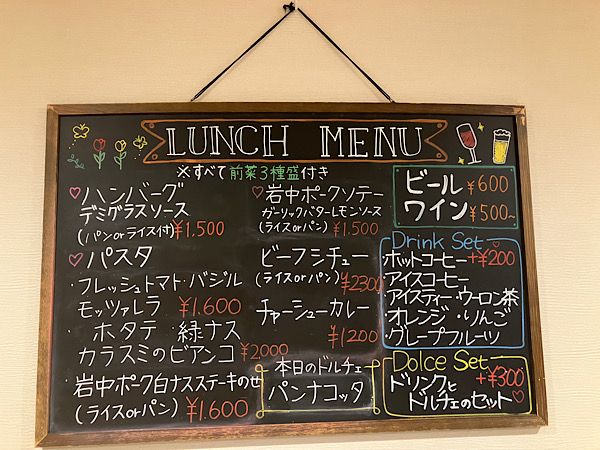 LUNCH MENU
※すべて前菜3種盛付き
♡ハンバーグ
デミグラスソース
(パンorライス付) ¥1.500
♡パスタ
フレッシュトマト・バジル
モッツァレラ ¥1.600
ホタテ・緑ナス
カラスミのビアンコ ¥2000
岩中ポーク白ナスステーキのせ
(ライスorパン) ¥1.600
♡岩中ポークソテー
ガーリックバターレモンソース
(ライスorパン) ¥1.500
ビーフシチュー
(ライスorパン) ¥2300
チャーシューカレー
¥1200
本日のドルチェ
パンナコッタ
ビール ¥600
ワイン ¥500~
Drink Set♡
ホットコーヒー +¥200
アイスコーヒー
アイスティー・ウーロン茶
オレンジ・りんご
グレープフルーツ
Dolce Set
ドリンクと +¥300
ドルチェのセット♡